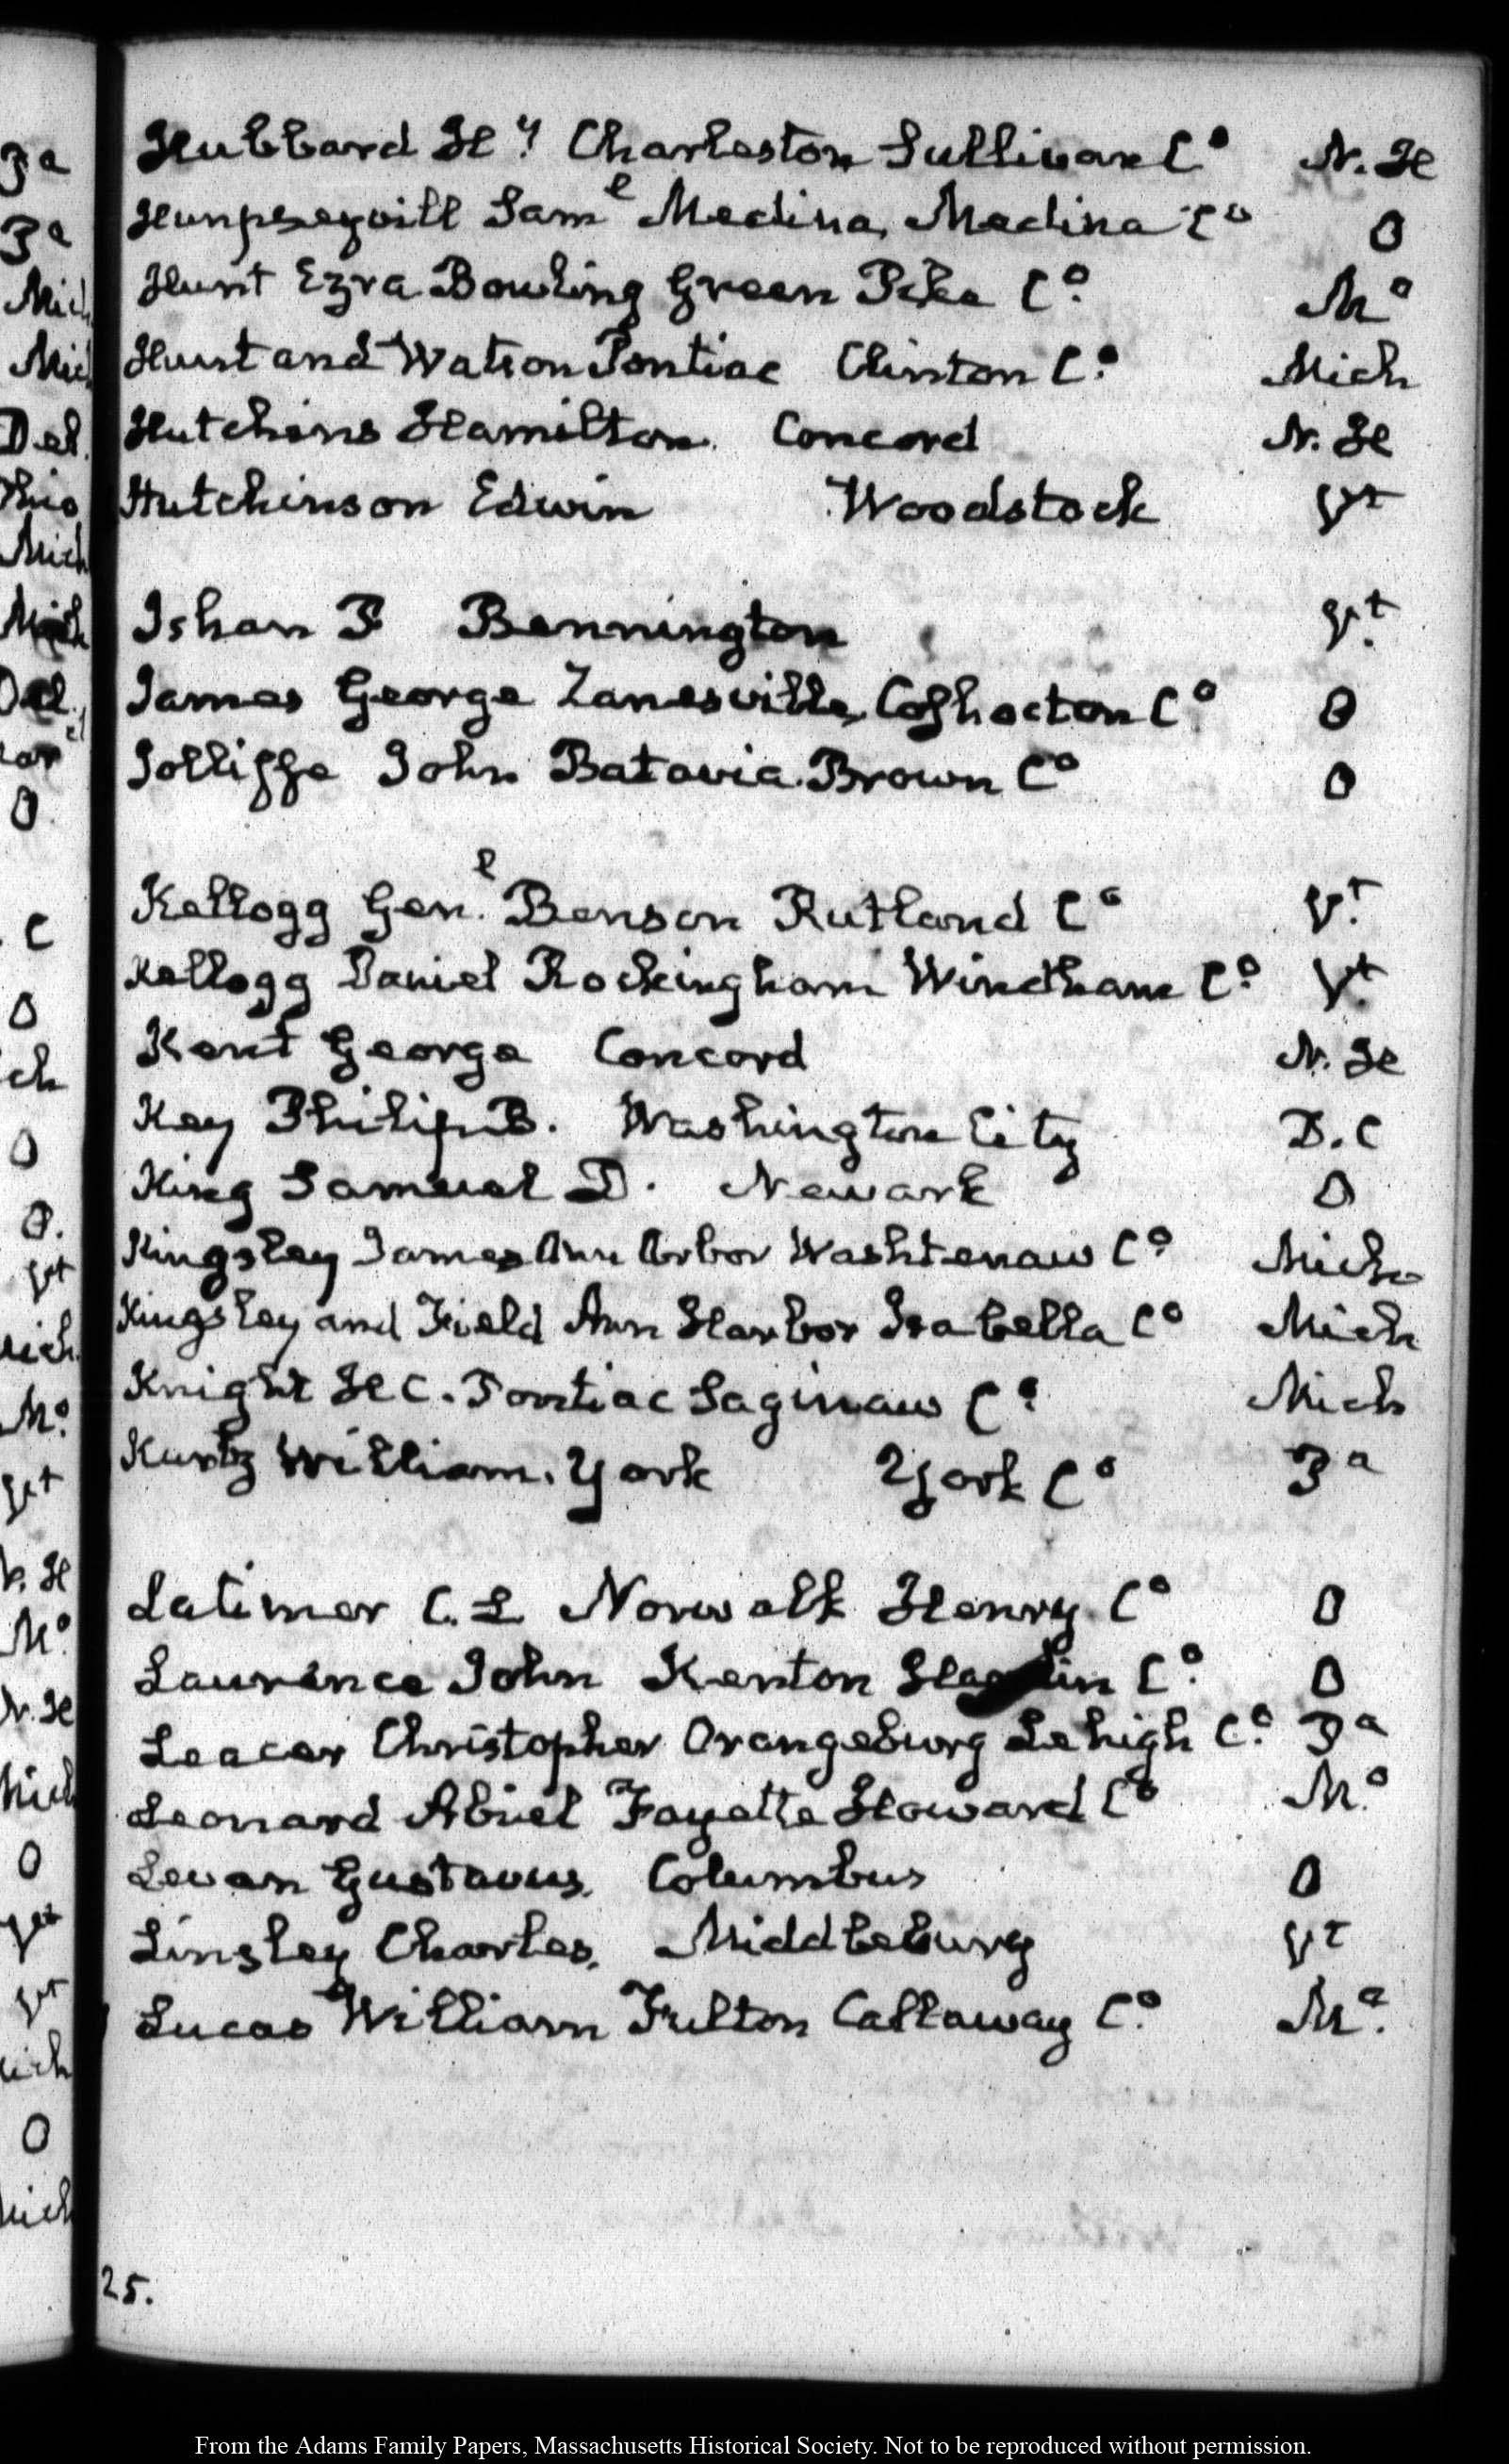 Hubbard Hy Charleston Sullivan Co. N. H
Hunpseyvill Saml Medina, Medina Co O
Hunt Ezra Bowling Green Pike Co. Mo
Hunt and Watson Pontiac Clinton Co. Mich
Hutchins Hamilton. Concord N. H
Hutchinson Edwin Woodstock Vt
Isham P Bennington Vt.
James George Zanesville, Coshocton Co. O
Jolliffe John Batavia. Brown Co O
Kellogg Genl. Benson Rutland Co Vt.
Kellogg Daniel Rockingham Windham Co. Vt.
Kent George Concord N. H
Key Philip B. Washington City D. C
King Samuel D. Newark O
Kingsley James Ann Arbor Washtenaw Co. Mich
Kingsley and Field Ann Harbor Isabella Co Mich
Knight H C. Pontiac Saginaw Co. Mich
Kurtz William. York York Co Pa
Latimer C. L Norwalk Henry. Co O
Laurence John Kenton Co. O
Leacer Christopher Orangeburg Lehigh Co. Pa
Leonard Abiel Fayette Howard Co Mo.
Levan Gustavus. Columbus O
Linsley Charles. Middlebury Vt
Lucas William Fulton Callaway Co. Mo.
25.
3a
3a
Mich
Mich
Del.
Ohio
Mich
Mich
Del.
O
C
O
ch
O
O.
Vt
Mich
Mo.
Vt
N. H
Mo.
N. H
Mich
O
Vt
Vt
ich
O
Mich
From the Adams Family Papers, Massachusetts Historical Society. Not to be reproduced without permission.